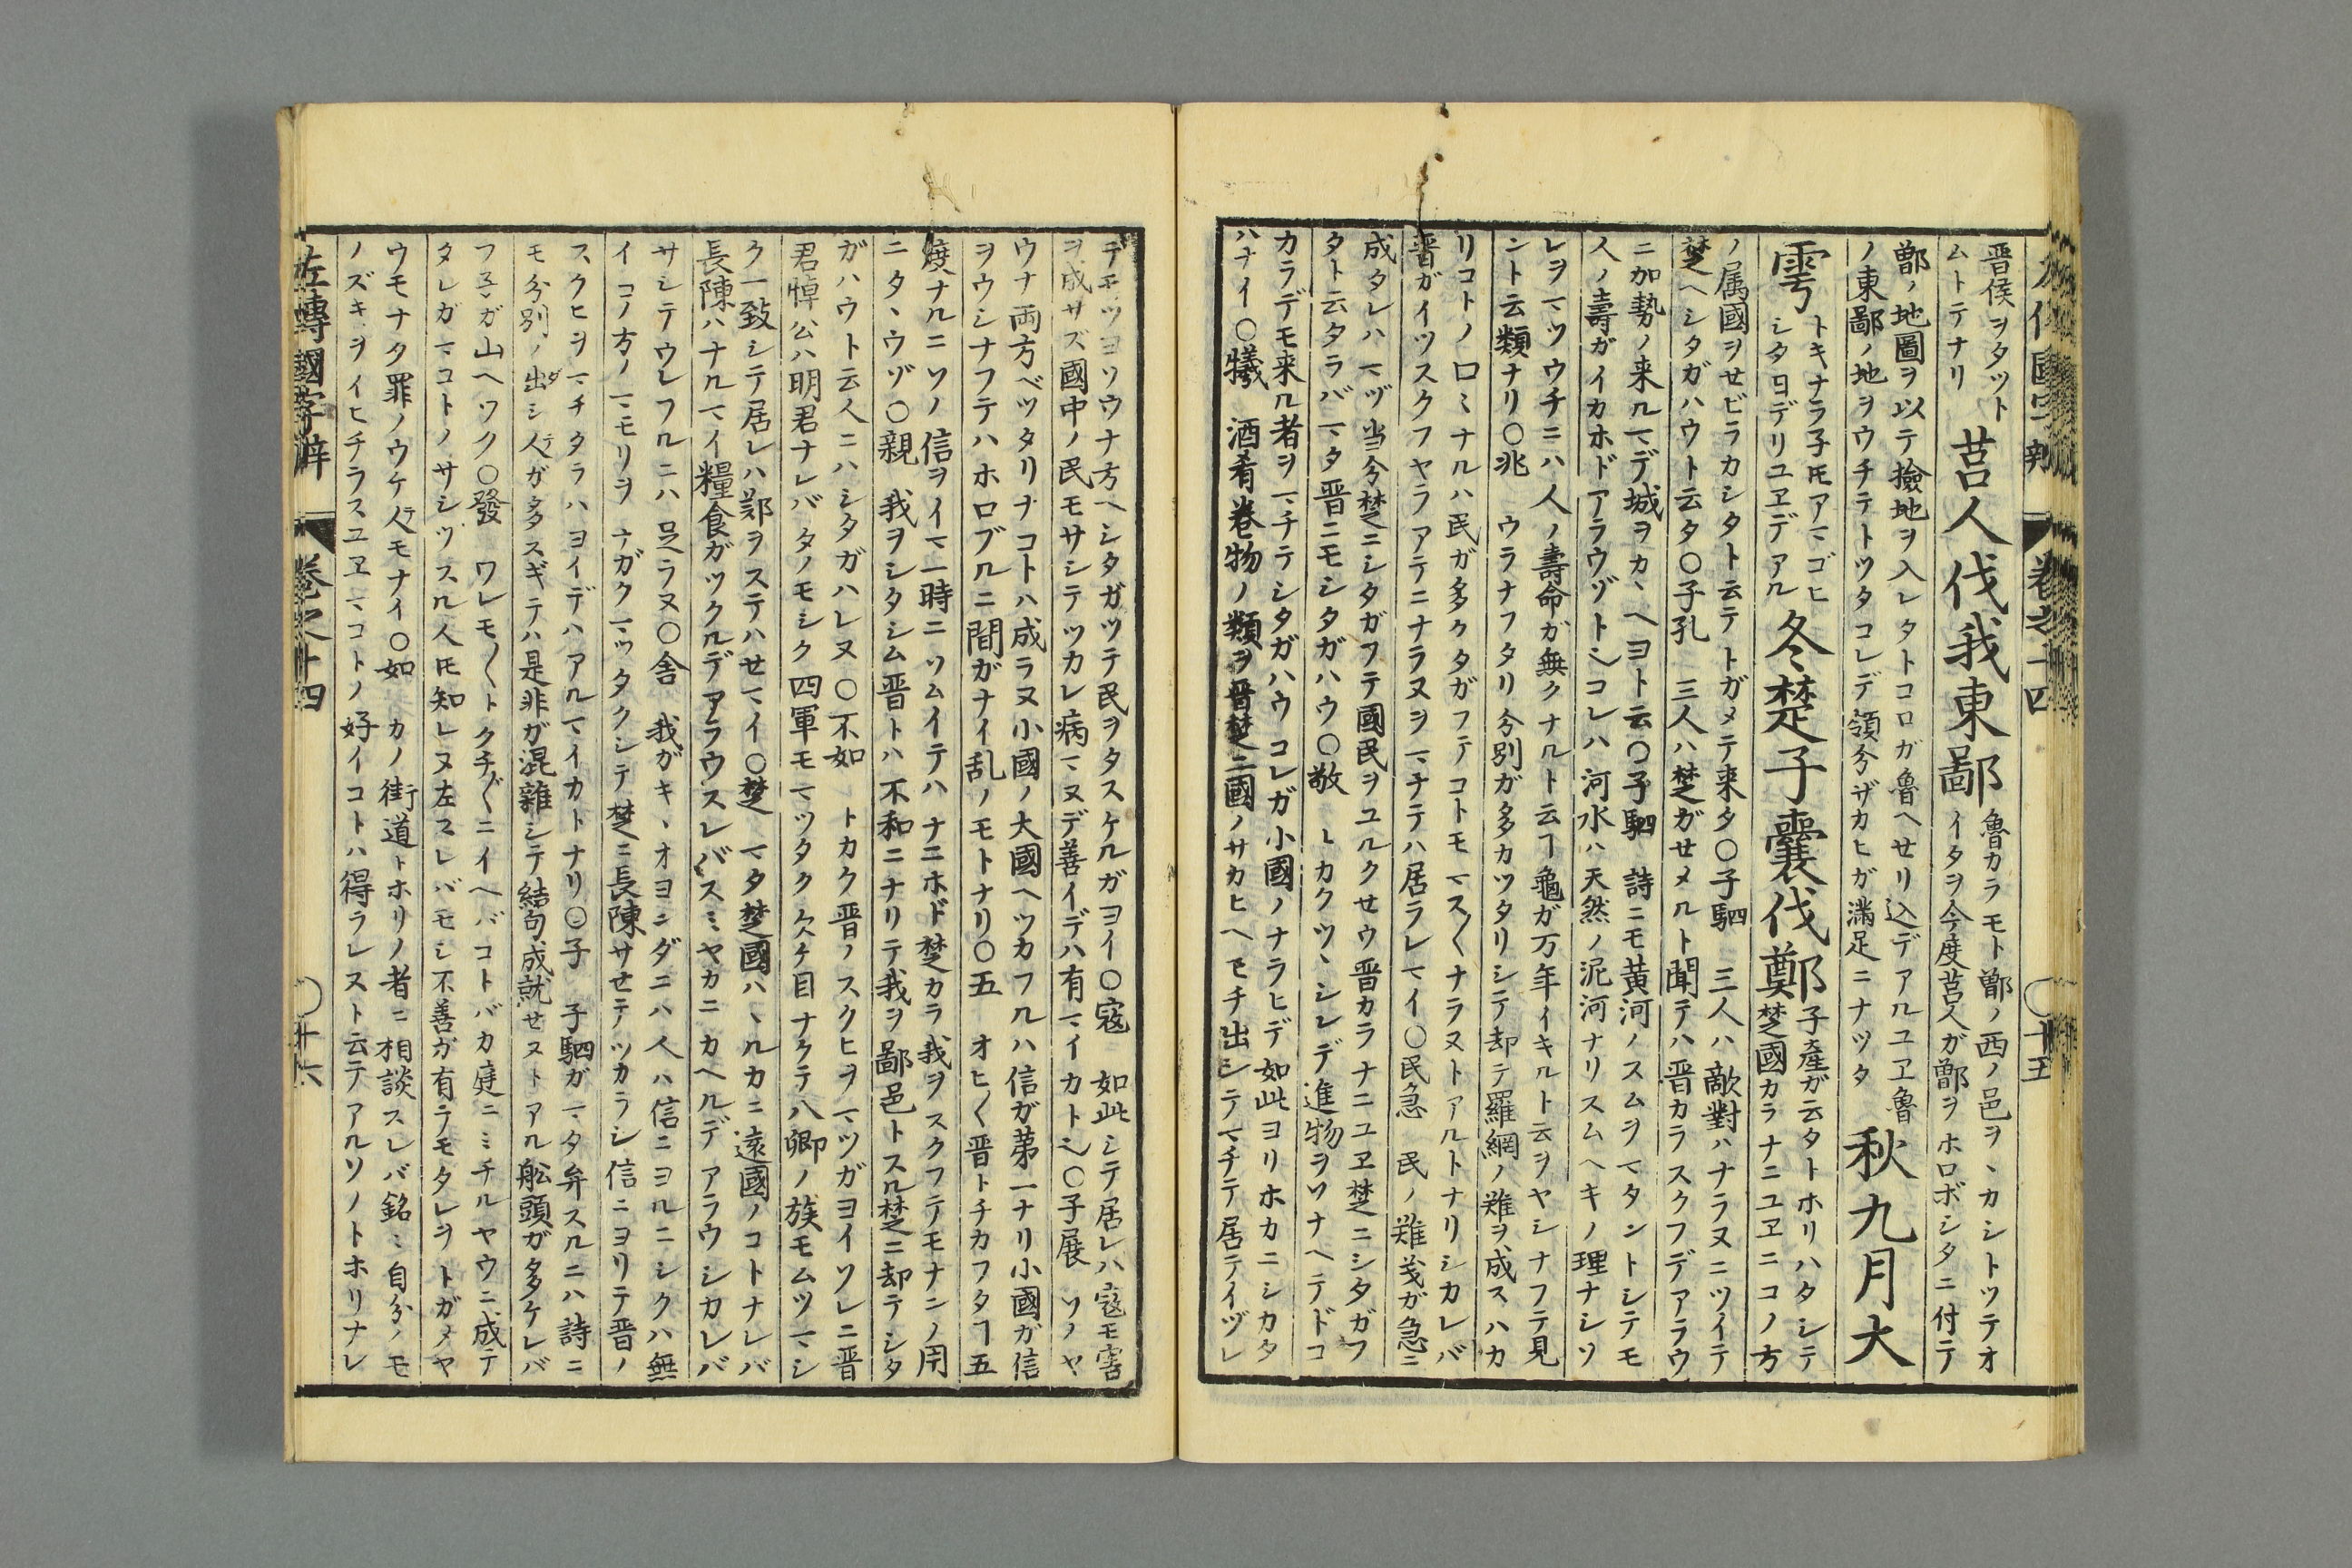 左傳國字辯 卷之十四 〇十五
晋侯ヲタツト
ムトテナリ
莒人伐我東鄙
魯カラモト鄫ノ西ノ邑ヲヽカシトツテオ
イタヲ今度莒人ガ鄫ヲホロボシタニ付テ
鄫ノ地圖ヲ以テ撿地ヲ入レタトコロガ魯ヘセリ込デアルユヱ魯
ノ東鄙ノ地ヲウチテトツタコレデ領分ザカヒガ滿足ニナツタ
秋九月大
雩
トキナラ子𪜈アマゴヒ
シタヨデリユヱデアル
冬楚子囊伐鄭
子產ガ云タトホリハタシテ
楚國カラナニユヱニコノ方
ノ属國ヲせビラカシタト云テトガメテ来タ〇子駟 三人ハ敵對ハナラヌニツイテ
楚ヘシタガハウト云タ〇子孔 三人ハ楚ガせメルト聞テハ晋カラスクフデアラウ
ニ加勢ノ来ルマデ城ヲカヽヘヨト云〇子駟 詩ニモ黄河ノスムヲマタントシテモ
人ノ壽ガイカホドアラウゾトシコレハ河水ハ天然ノ泥河ナリスムヘキノ理ナシソ
レヲマツウチニハ人ノ壽命ガ無クナルト云ヿ龜ガ万年イキルト云ヲヤシナフテ見
ント云類ナリ〇兆 ウラナフタリ分別ガ多カツタリシテ却テ羅網ノ難ヲ成スハカ
リコトノ口ミナルハ民ガ多クタガフテコトモマス〱ナラヌトアルトナリシカレバ
晋ガイツスクフヤラアテニナラヌヲマチテハ居ラレマイ〇民急 民ノ難義ガ急ニ
成タレハマヅ当今楚ニシタガフテ國民ヲユルクせウ晋カラナニユヱ楚ニシタガフ
タト云タラバマタ晋ニモシタガハウ〇敬 トカクツヽシレデ進物ヲソナヘテドコ
カラデモ来ル者ヲマチテシタガハウコレガ小國ノナラヒデ如此ヨリホカニシカタ
ハナイ〇犧 酒肴卷物ノ類ヲ晋楚二國ノサカヒヘモチ出シテマチテ居テイヅレ
デモツヨソウナ方ヘシタガツテ民ヲタスケルガヨイ〇寇 如此シテ居レハ寇モ害
ヲ成サズ國中ノ民モサシテツカレ病マヌデ善イデハ有マイカトシ〇子展 ソノヤ
ウナ両方ベツタリナコトハ成ラヌ小國ノ大國ヘツカフルハ信ガ第一ナリ小國ガ信
ヲウシナフテハホロブルニ間ガナイ乱ノモトナリ〇五 オヒ〱晋トチカフタヿ五
度ナルニソノ信ヲイマ一時ニソムイテハナニホド楚カラ我ヲスクフテモナンノ用
ニタヽウゾ〇親 我ヲシタシム晋トハ不和ニナリテ我ヲ鄙邑トスル楚ニ却テシタ
ガハウト云人ニハシタガハレヌ〇不如 トカク晋ノスクヒヲマツガヨイソレニ晋
君悼公ハ明君ナレバタノモシク四軍モマツタク欠ケ目ナクテ八卿ノ族モムツマシ
ク一致シテ居レハ鄭ヲステハせマイ〇楚 マタ楚國ハヽルカニ遠國ノコトナレバ
長陳ハナルマイ糧食ガツクルデアラウスレバスミヤカニカヘルデアラウシカレバ
サシテウレフルニハ足ラヌ〇舎 我ガキヽオヨンダニハ人ハ信ニヨルニシクハ無
イコノ方ノマモリヲナガクマツタクシテ楚ニ長陳サせテツカラシ信ニヨリテ晋ノ
スクヒヲマチタラハヨイデハアルマイカトナリ〇子 子駟ガマタ弁スルニハ詩ニ
モ分別ノ出シ人ガ多スギテハ是非ガ混雜シテ結句成就せヌトアル舩頭ガ多ケレバ
フ子ガ山ヘツク〇發 ワレモ〱トクチ〲ニイヘバコトバカ庭ニミチルヤウニ成テ
タレガマコトノサシヅスル人𪜈知レヌ左スレバモシ不善ガ有テモタレヲトガメヤ
ウモナタ罪ノウケ人モナイ〇如 カノ街道トホリノ者ニ相談スレバ銘ミ自分ノモ
ノズキヲイヒチラスユヱマコトノ好イコトハ得ラレスト云テアルソノトホリナレ
左轉國字辯 卷之十四 〇十六